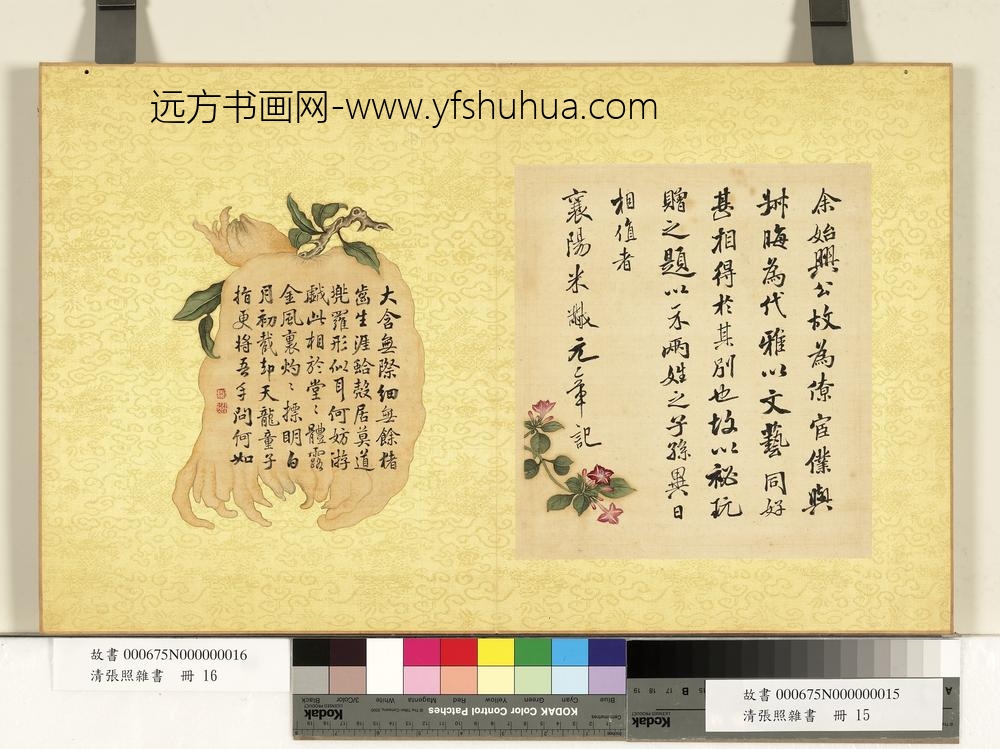 远方书画网-www.yfshuhua.com
余始興公故為僚宦僕與
叔晦為代雅以文藝同好
甚相得於其別也故以祕玩
贈之題以示兩姓之子孫異日
相值者
襄陽米黻元章記
大含無際細無餘指
齒生涯蛤殼居莫道
兜羅形似耳何妨游
戲此相於堂〻體露
金風裏灼〻摽明白
月初截却天龍童子
指更將吾手問何如
故書 000675N000000016
清張照雜書 冊 16
故書 000675N000000015
清張照雜書 冊 15
Blue
Cyan
Green
Yellow
Red
Magenta
White
3/Color
Black
KODAK Color Control Patches
Kodak
LICENSED PRODUCT
Centimetres
Kodak
LICENSED PRODUCT
A
B
15
16
17
18
19